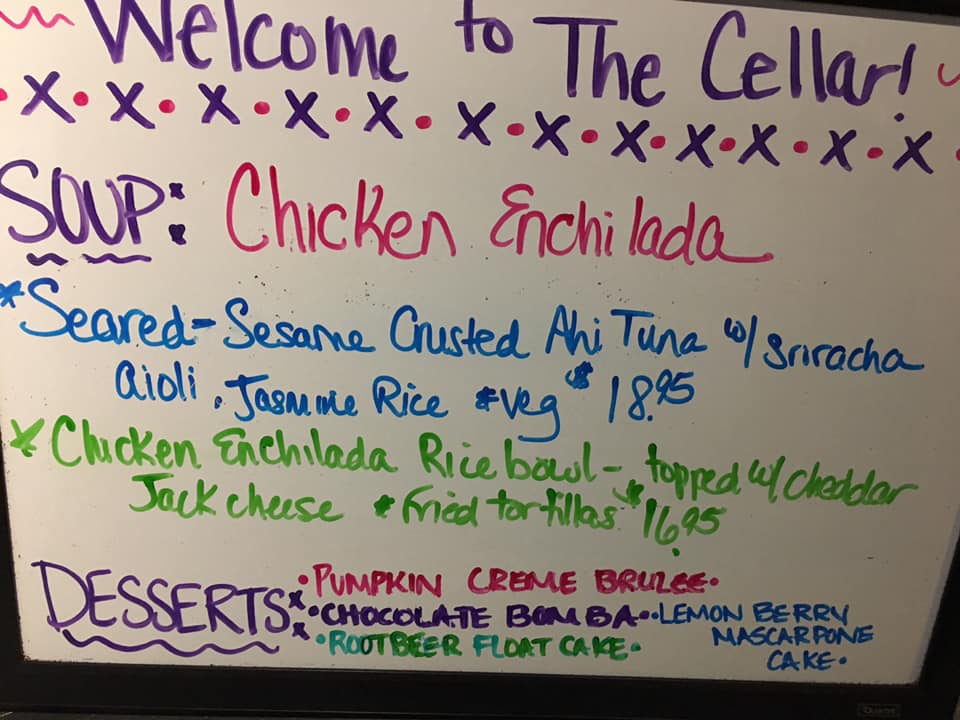 Welcome to The Cellar!
x • x • x • x • x • x • x • x • x • x • x • x
SOUP: Chicken Enchilada
*Seared-Sesame Crusted Ahi Tuna w/ Sriracha
aioli, Jasmine Rice & veg $18.95
*Chicken Enchilada Rice bowl- topped w/ cheddar
Jack cheese & fried tortillas $16.95
DESSERTS: •PUMPKIN CREME BRULEE•
•CHOCOLATE BOMBA• •LEMON BERRY
MASCARPONE
CAKE•
•ROOTBEER FLOAT CAKE•